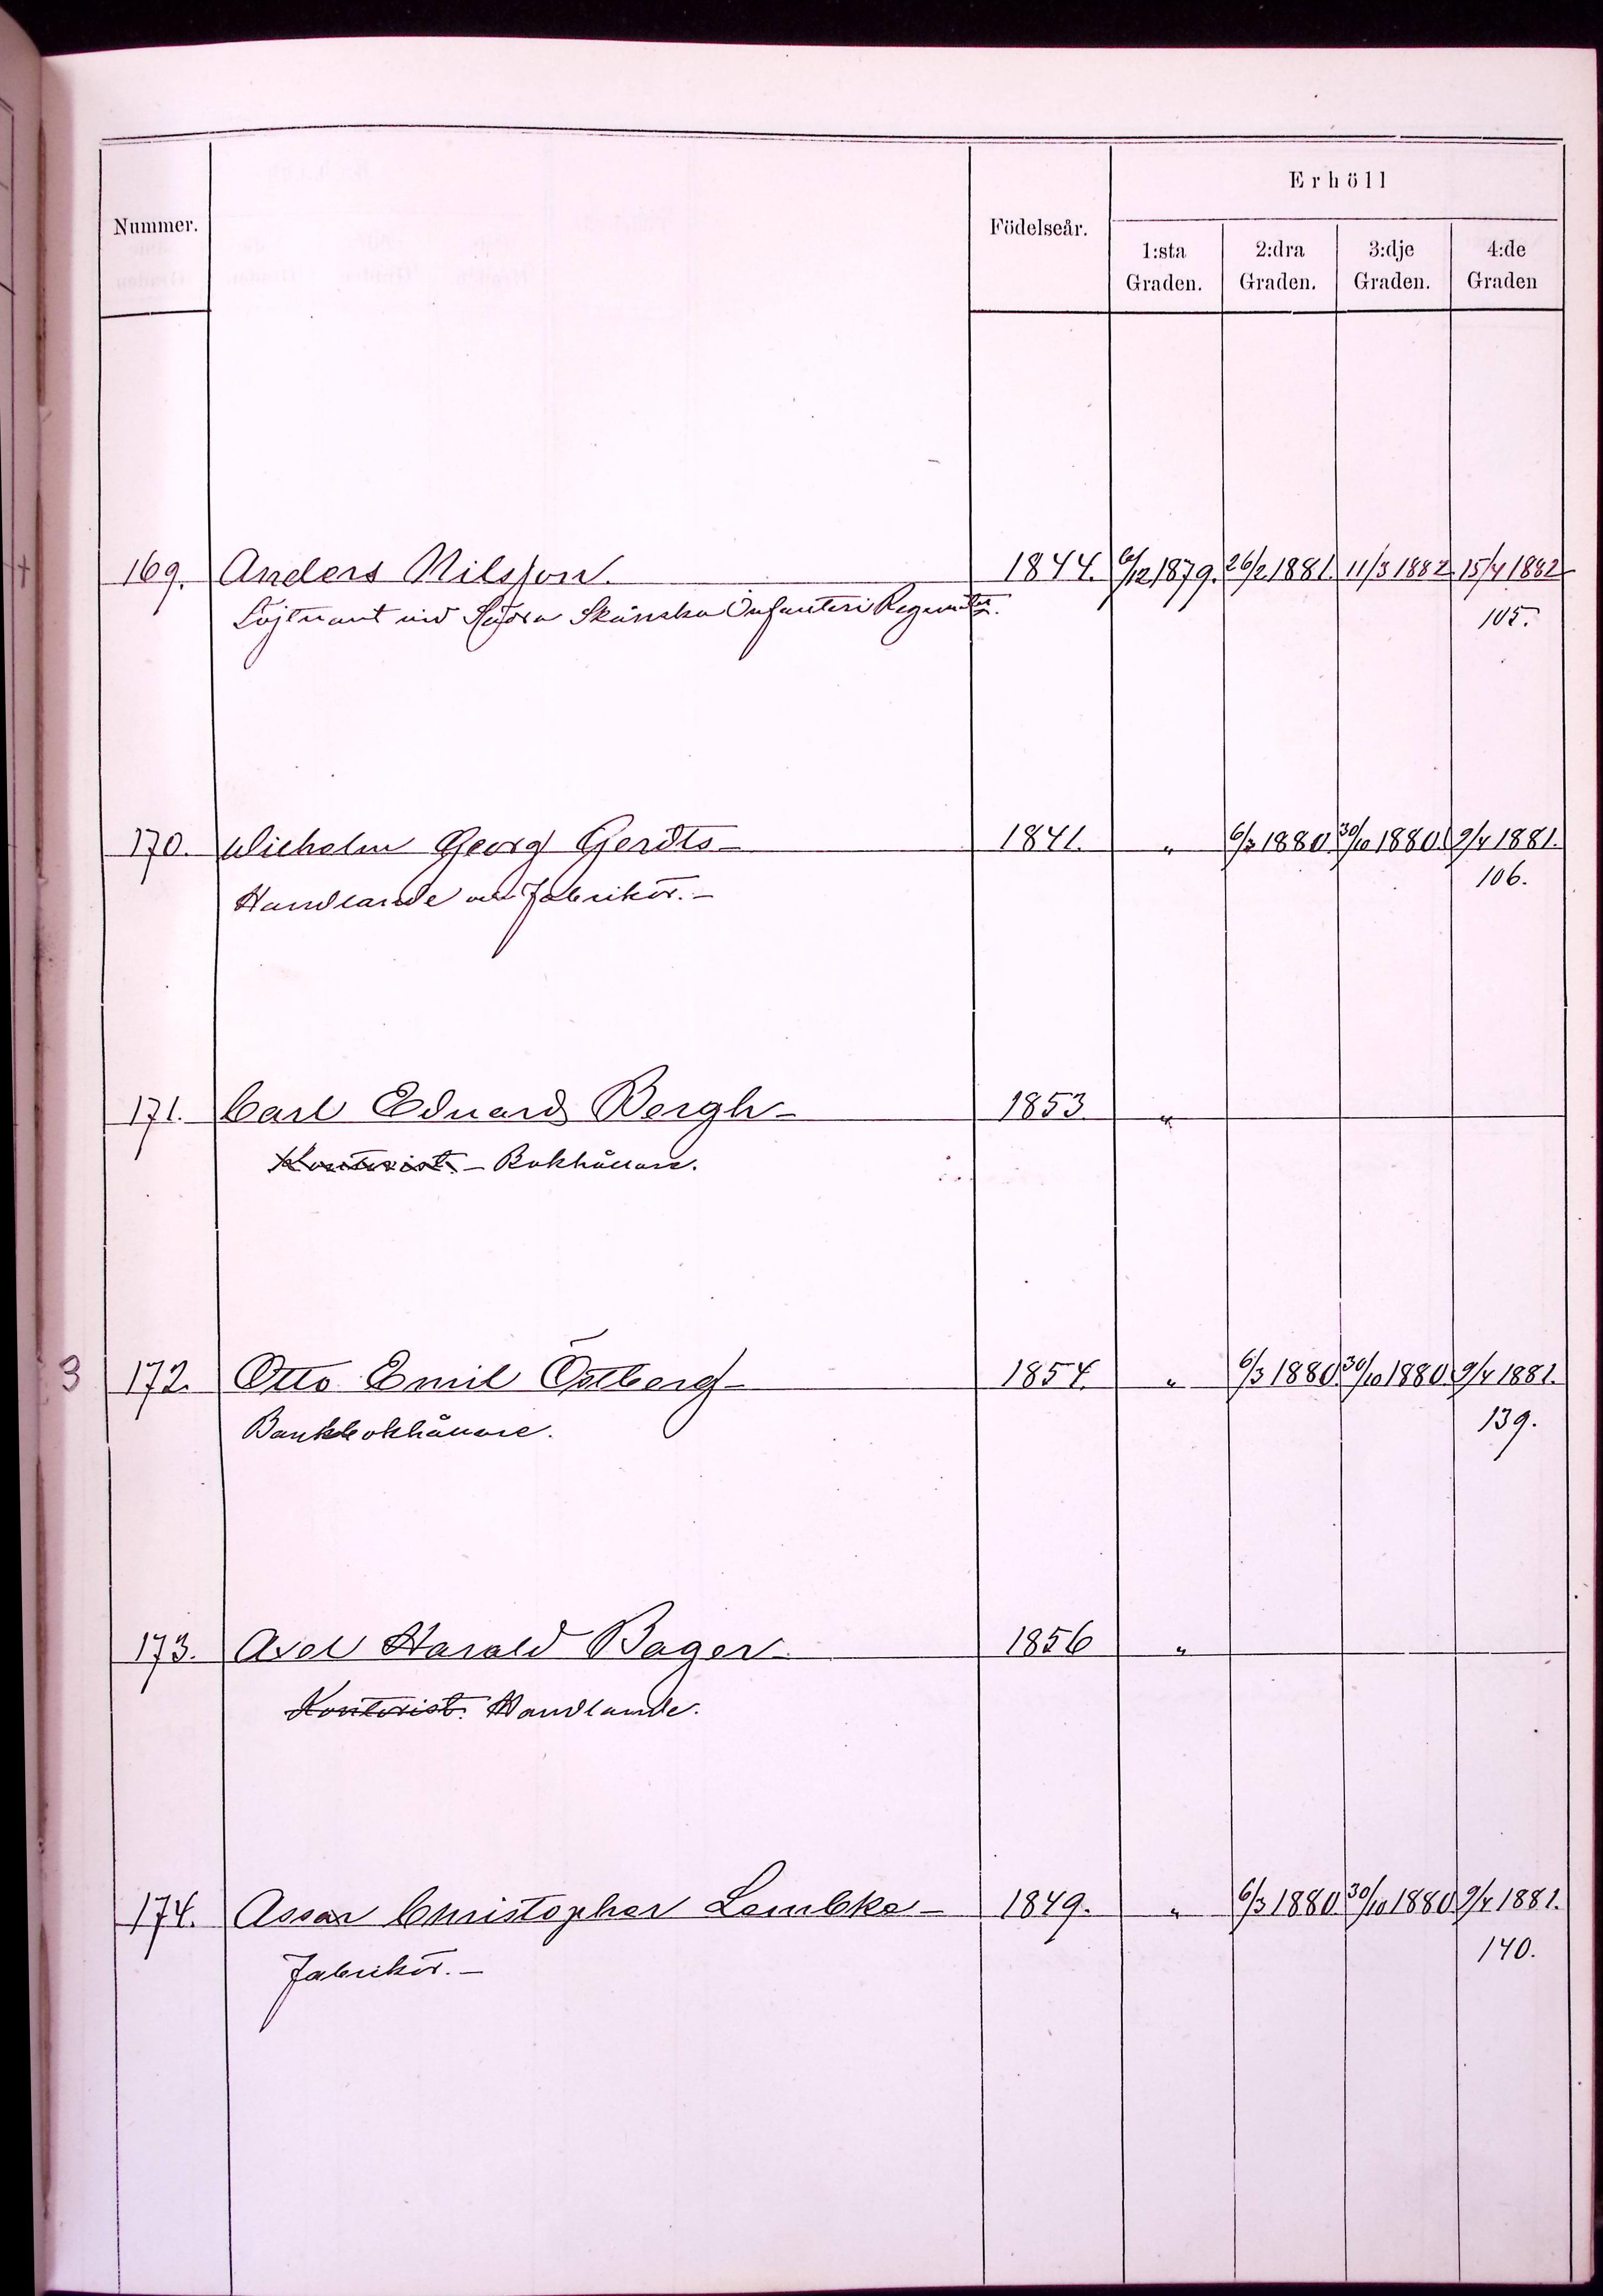 Erhöll
Nummer. Födelseår.
1:sta 2:dra 3:dje 4:de
Graden. Graden. Graden. Graden
169. Anders Nilsson. 1844. 6/12 1879. 26/2 1881. 11/3 1882 15/4 1882
Löjtnant vid Södra Skånska Infanteri Regementet. 105.
170. Wilhelm Georg Gerdts – 1841. " 6/3 1880. 30/10 1880. 9/4 1881.
Handlande och Fabrikör. – 106.
171. Carl Eduard Bergh – 1853. "
Kontorist. – Bokhållare.
3 172. Otto Emil Östberg – 1854. " 6/3 1880. 30/10 1880. 9/4 1881.
Bankbokhållare. 139.
173. Axel Harald Bager – 1856 "
Kontorist. Handlande.
174. Assar Christopher Lembke – 1849. " 6/3 1880. 30/10 1880 9/4 1881.
Fabrikör. – 140.